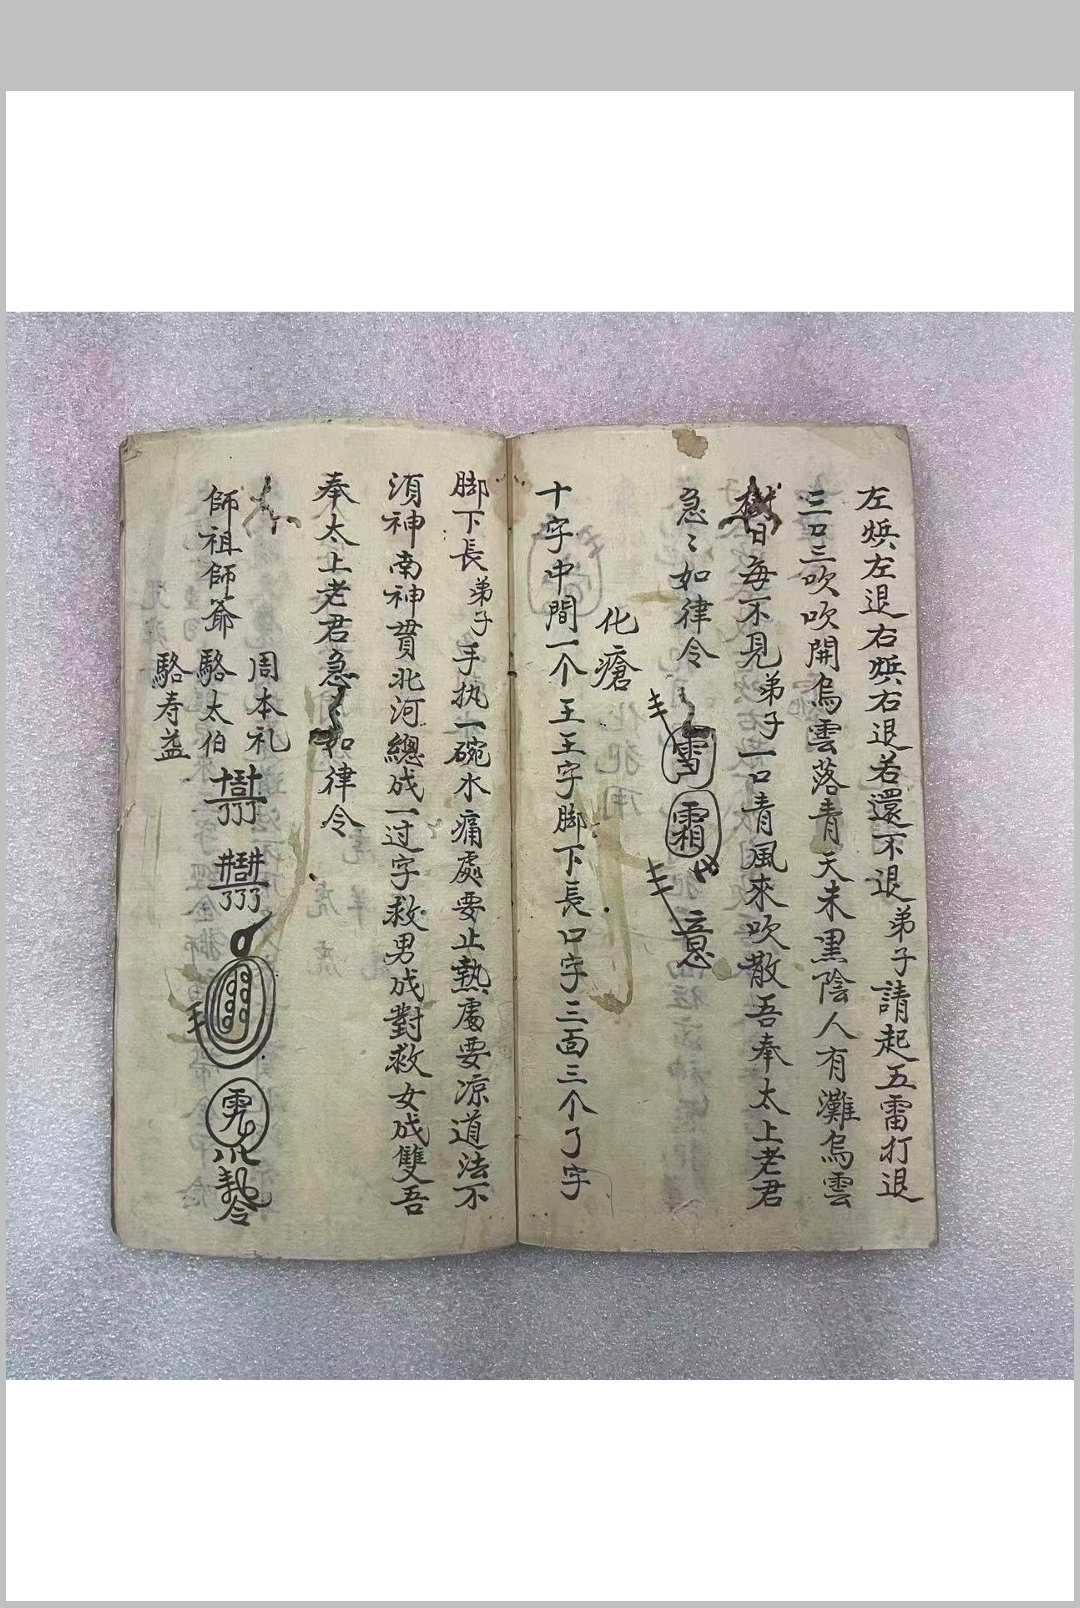 左㷠左退右㷠右退若還不退弟子請起五雷打退
三口三吹吹開烏雲落青天未黑陰人有灘烏雲
日每不見弟子一口青風來吹散吾奉太上老君
急〻如律令
霜 意
化瘡
十字中間一个王王字脚下長口字三面三个了字
脚下長弟子手执一碗水痛處要止熱處要凉道法不
湏神南神貫北河總成一过字救男成對救女成雙吾
奉太上老君急〻如律令
周本礼
師祖師爺駱太伯
駱寿益